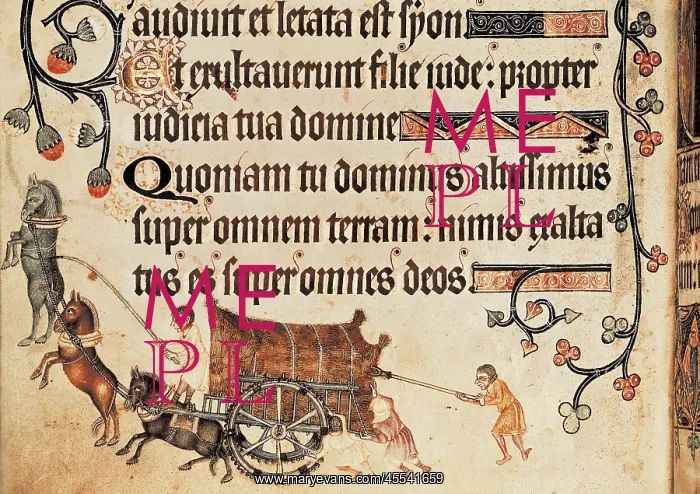 audiuit et letata est syon.
Et exultauerunt filie iude: propter
iudicia tua domine
Quoniam tu dominus altissimus
super omnem terram: nimis exalta
tus es super omnes deos.
ME
PL
ME
PL
www.maryevans.com/45541659